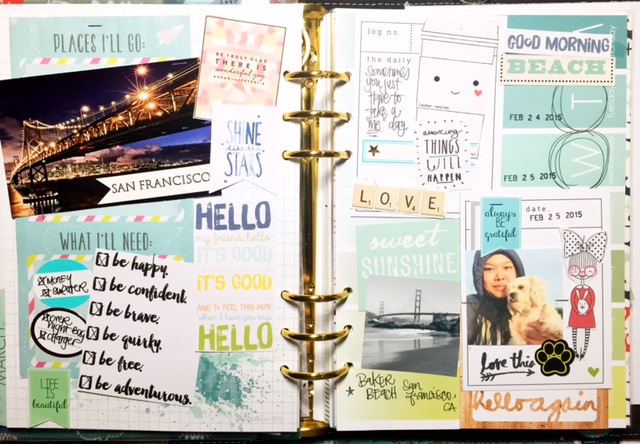 PLACES I'LL GO:
BE TRULY GLAD
THERE IS
wonderful joy
AHEAD
SAN FRANCISCO
SHINE
like the
STARS
WHAT I'LL NEED:
MONEY
SWEATER
charger
be happy.
be confident.
be brave.
be quirky.
be free.
be adventurous.
LIFE
IS
beautiful
HELLO
my friend hello
IT'S GOOD
IT'S GOOD
AND TO FEEL THIS WAY
when I hear you say
HELLO
MARCH
log no
the daily
Sometimes
you just
have to
take a
me day
amazing
THINGS
WILL
HAPPEN
GOOD MORNING
BEACH
FEB 24 2015
FEB 25 2015
LOVE
sweet
SUNSHINE
BAKER
BEACH San
francisco,
CA
always
BE
grateful
date
FEB 25 2015
love this
hello again